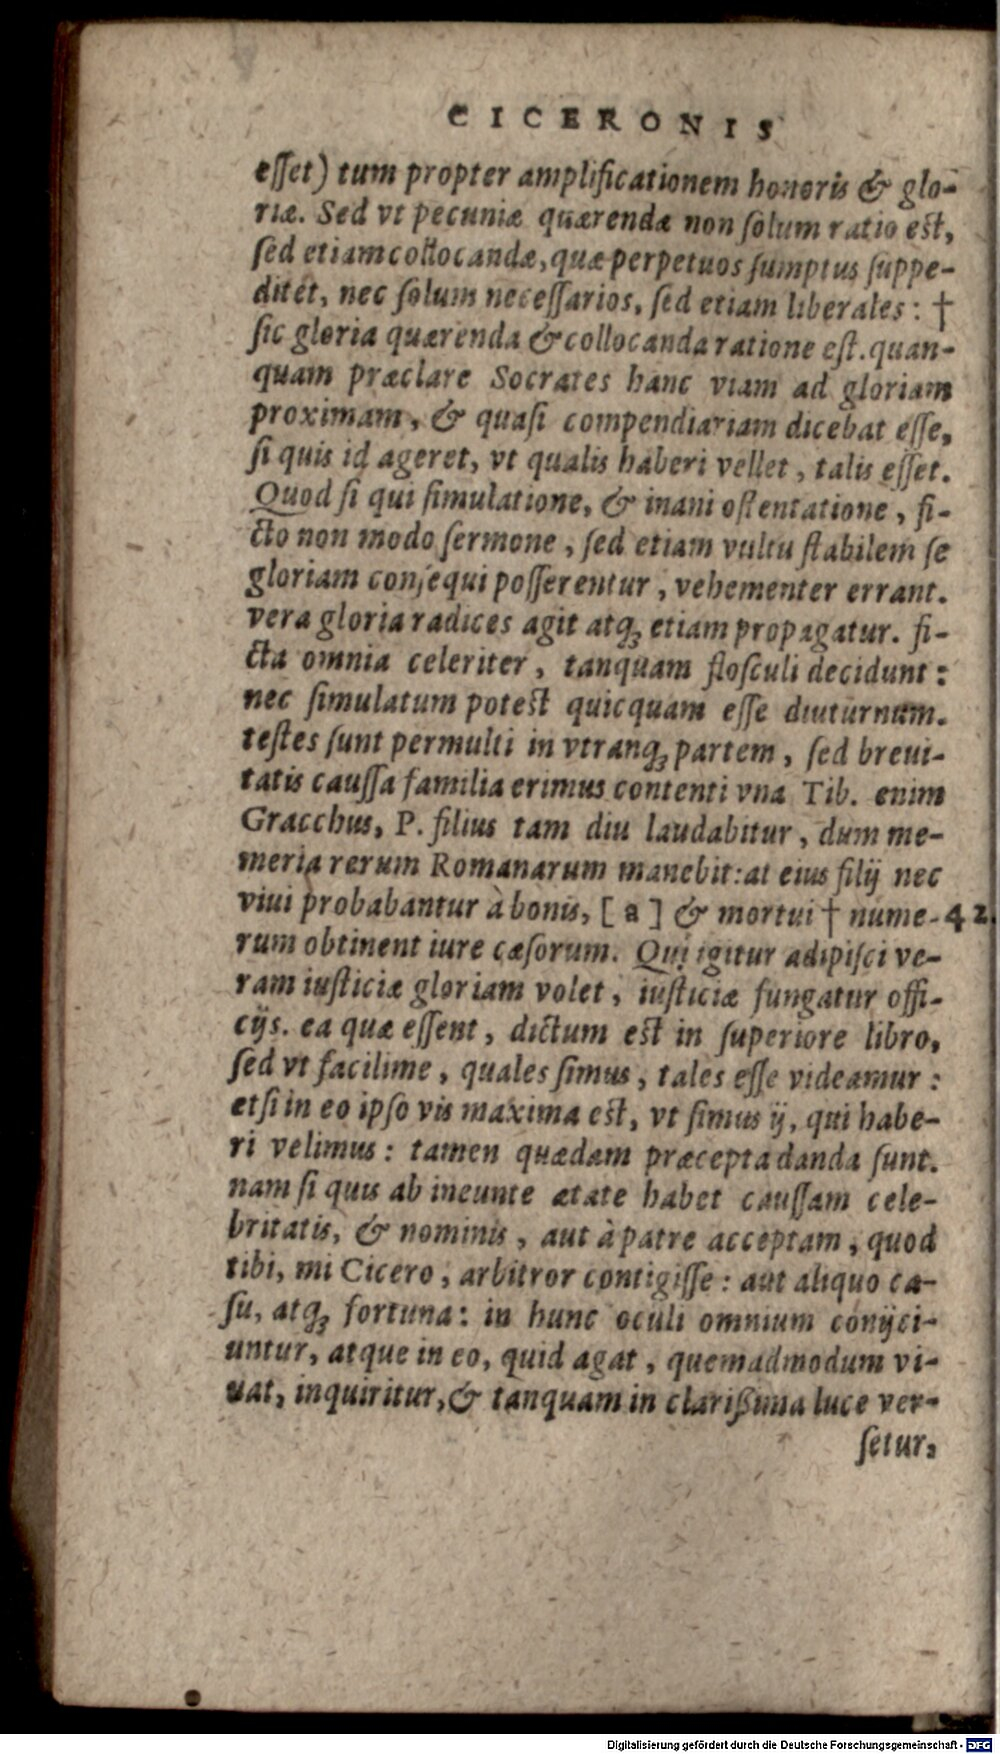 CICERONIS
eſſet) tum propter amplificationem honoris & glo-
riæ. Sed vt pecuniæ quærendæ non ſolum ratio eſt,
ſed etiam collocandæ, quæ perpetuos ſumptus ſuppe-
ditet, nec ſolum neceſſarios, ſed etiam liberales: †
ſic gloria quærenda & collocanda ratione eſt. quan-
quam præclare Socrates hanc viam ad gloriam
proximam, & quaſi compendiariam dicebat eſſe,
ſi quis id ageret, vt qualis haberi vellet, talis eſſet.
Quod ſi qui ſimulatione, & inani oſtentatione, fi-
cto non modo ſermone, ſed etiam vultu ſtabilem ſe
gloriam conſequi poſſe rentur, vehementer errant.
vera gloria radices agit atqꝫ etiam propagatur. fi-
cta omnia celeriter, tanquam floſculi decidunt:
nec ſimulatum poteſt quicquam eſſe diuturnum.
teſtes ſunt permulti in vtranqꝫ partem, ſed breui-
tatis cauſſa familia erimus contenti vna Tib. enim
Gracchus, P. filius tam diu laudabitur, dum me-
meria rerum Romanarum manebit: at eius filij nec
viui probabantur à bonis, [a] & mortui † nume- 42.
rum obtinent iure cæſorum. Qui igitur adipiſci ve-
ram iuſticiæ gloriam volet, iuſticiæ fungatur offi-
cijs. ea quæ eſſent, dictum eſt in ſuperiore libro,
ſed vt facilime, quales ſimus, tales eſſe videamur:
etſi in eo ipſo vis maxima eſt, vt ſimus ij, qui habe-
ri velimus: tamen quædam præcepta danda ſunt.
nam ſi quis ab ineunte ætate habet cauſſam cele-
britatis, & nominis, aut à patre acceptam, quod
tibi, mi Cicero, arbitror contigiſſe: aut aliquo ca-
ſu, atqꝫ fortuna: in hunc oculi omnium conijci-
untur, atque in eo, quid agat, quemadmodum vi-
uat, inquiritur, & tanquam in clariſſima luce ver-
ſetur,
Digitalisierung gefördert durch die Deutsche Forschungsgemeinschaft - DFG